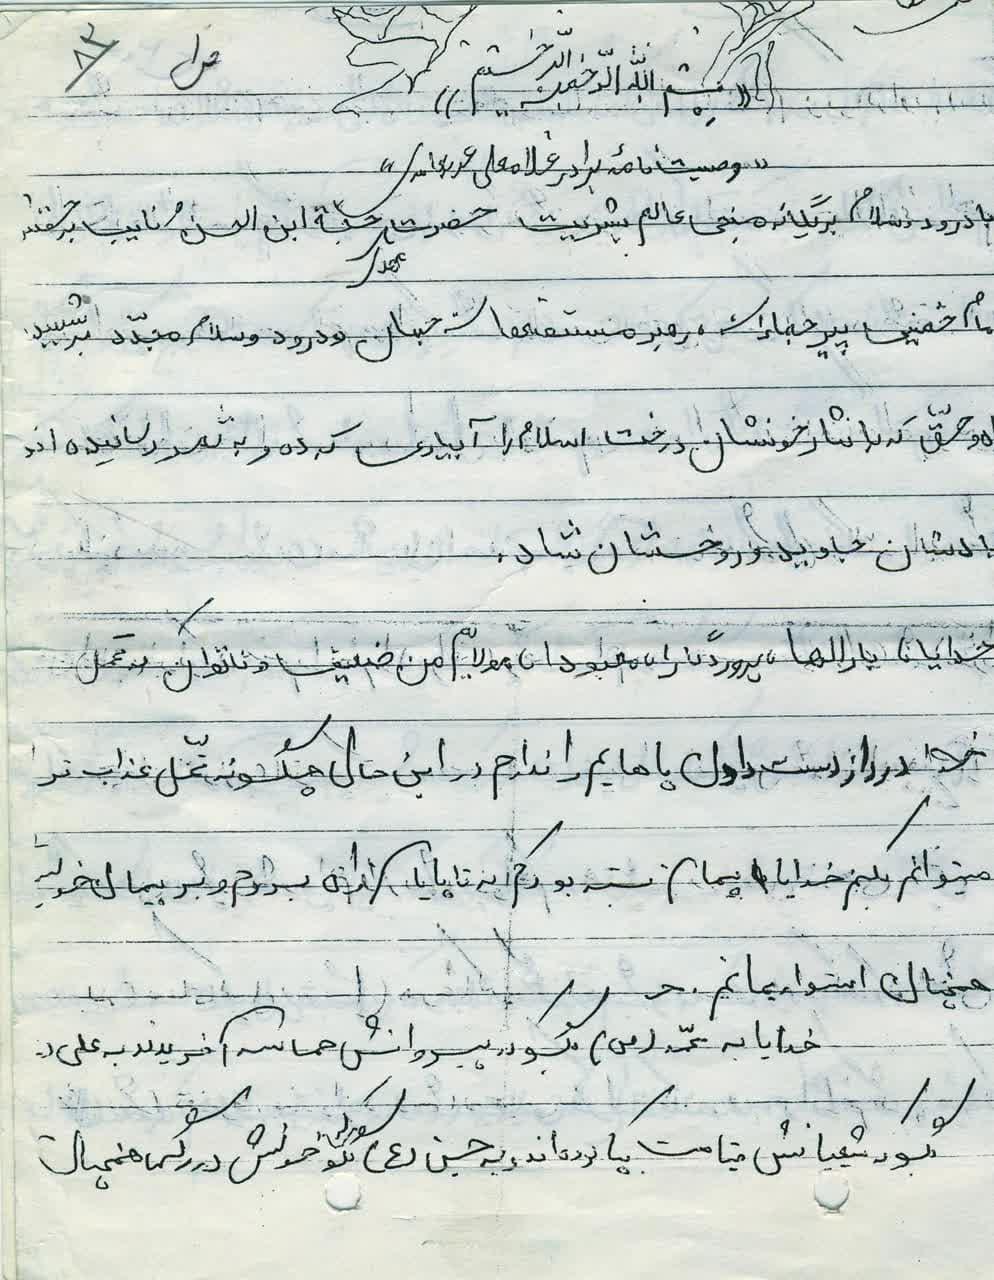 ۸۳
«بسم الله الرحمن الرحیم»
«وصیت نامهٔ برادر غلامعلی
با درود و سلام بر یگانه منجی عالم بشریت حضرت حجة ابن الحسن و نایب بر حقش
مهدی
امام خمینی پیر جماران، رهبر مستضعفان جهان و درود و سلام مجدّد بر شهیدان
راه حقّ که با نثار خونشان درخت اسلام را آبیاری کرده و به ثمر رسانیده اند
یادشان جاوید و روحشان شاد.
خدایا، بارالها، پروردگارا، معبودا، مولایم من ضعیف و ناتوان تحمل
درد از دست دادن پاهایم را ندارم در این حال چگونه تحمّل عذاب ترا
میتوانم بکنم خدایا پیمان بسته بودم که تا پایان راه بروم و بر پیمان خویش
همچنان استوار بمانم.
خدایا به محمّد (ص) بگو که پیروانش حماسه آفریدند به علی
بگو که شیعیانش قیامت بپا کرده‌اند و به حسین (ع) بگو خونش در رگها همچنان